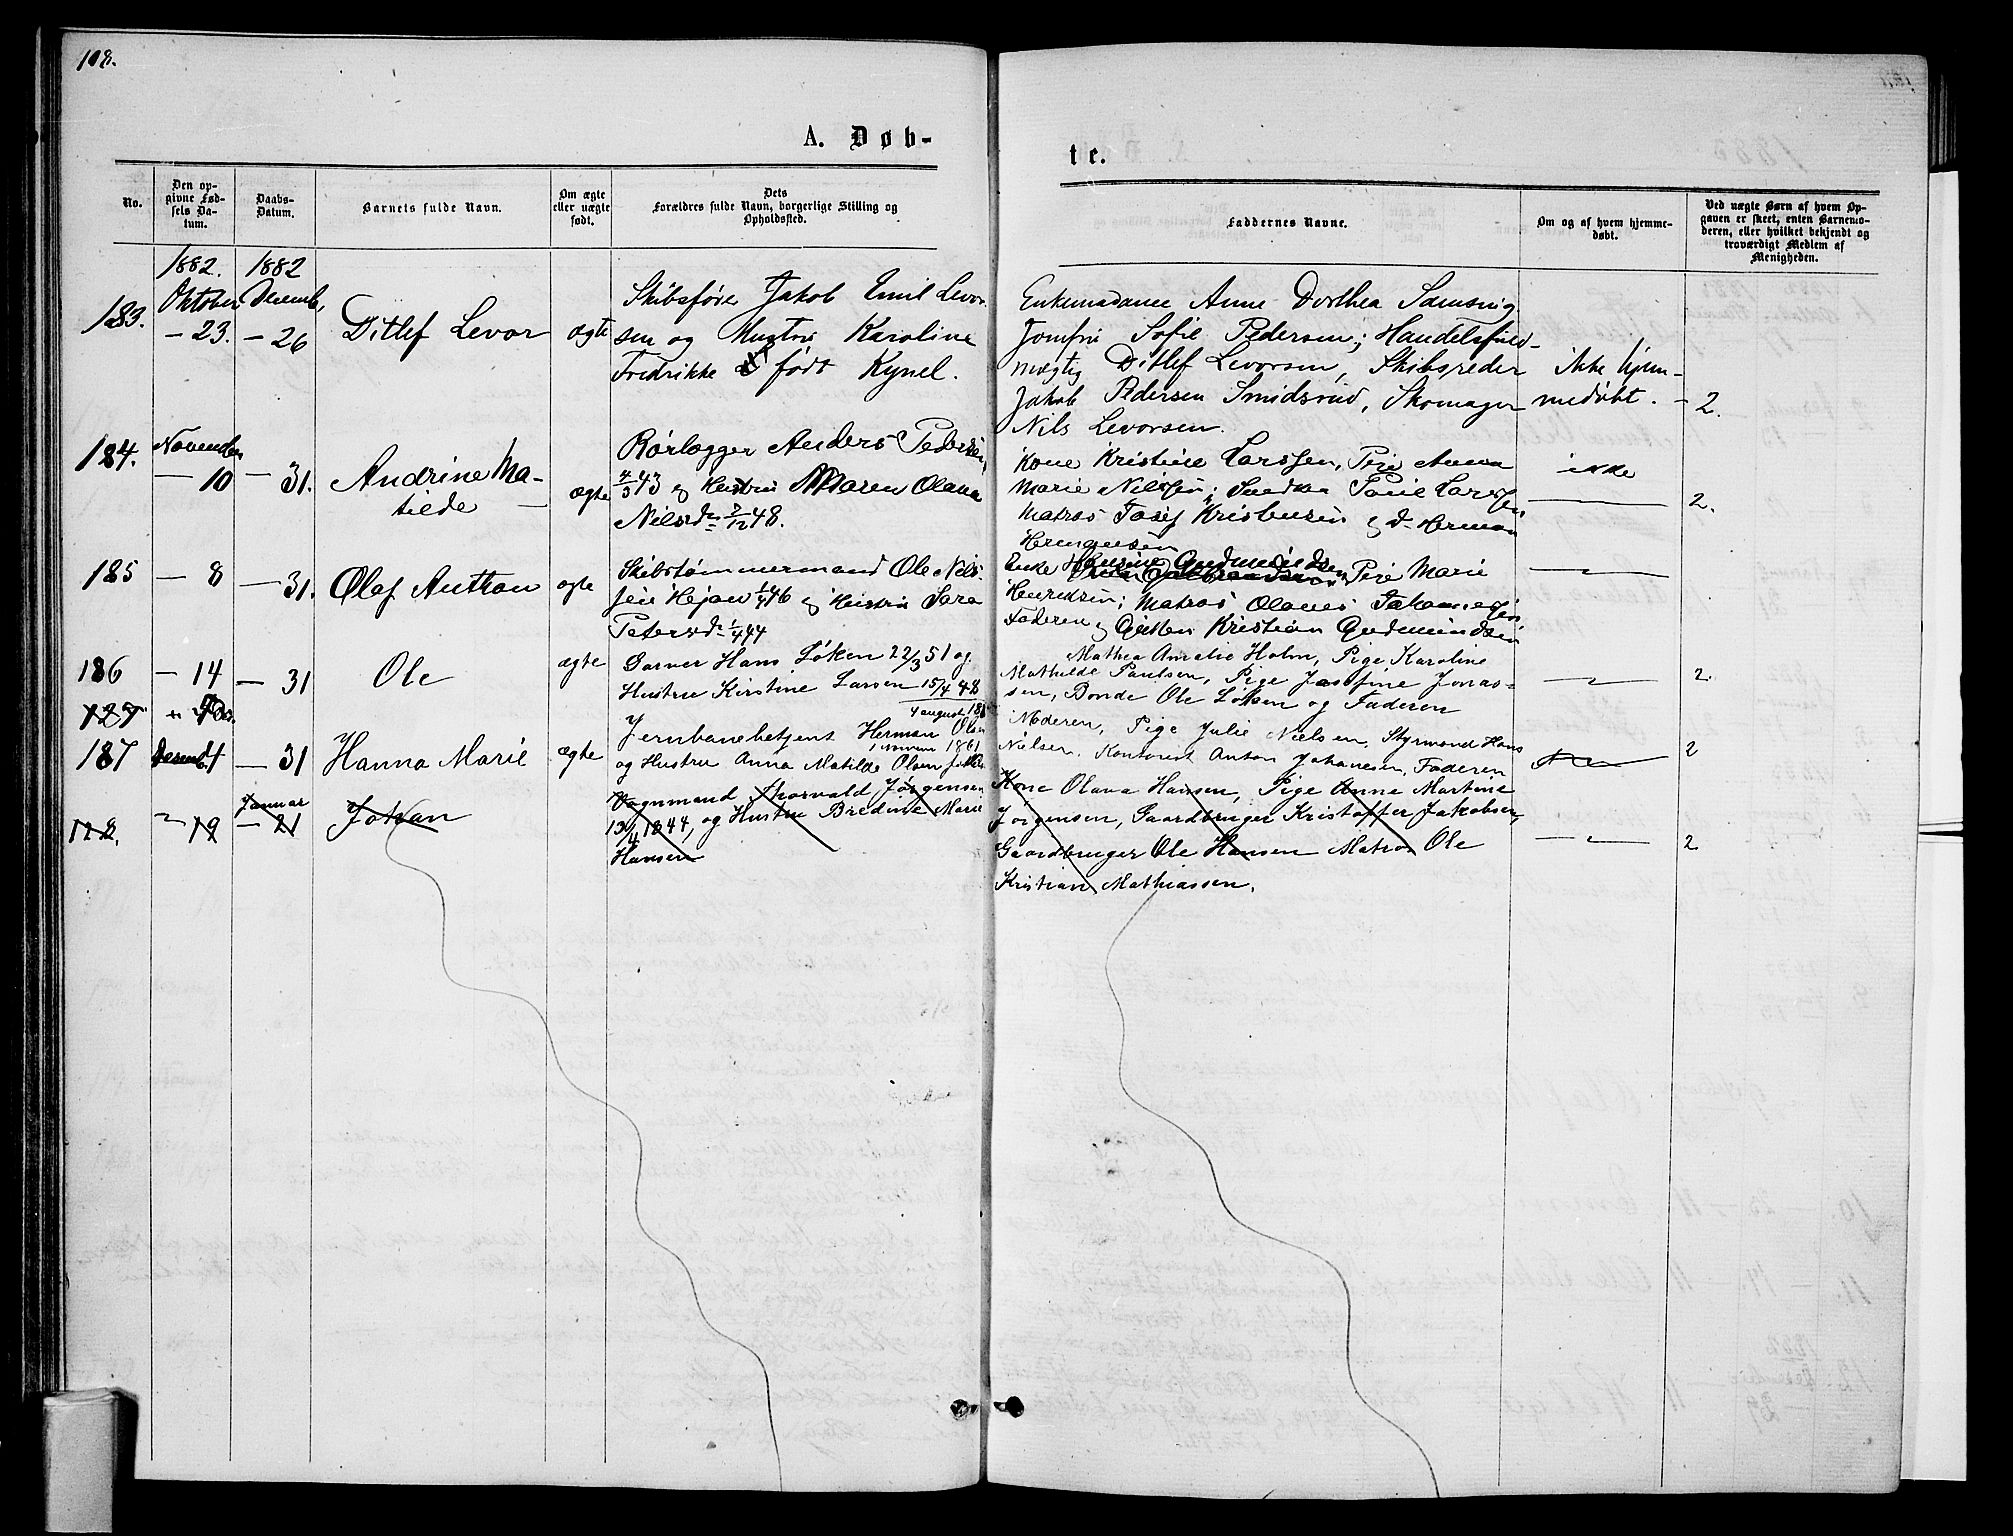 118.
A. Døb-
te.
No.
Den op-
givne Fød-
sels Da-
tum.
Daabs-
Datum.
Barnets fulde Navn.
Om ægte
eller uægte
født.
Dets
Forældres fulde Navn, borgerlige Stilling og
Opholdssted.
Faddernes Navne.
Om og af hvem hjemme-
døbt.
Ved uægte Børn af hvem Op-
gaven er skeet, enten Barnemo-
deren, eller hvilket bekjendt og
troværdigt Medlem af
Menigheden.
1882. 1882
Oktober Decemb,
183. - 23. - 26 Ditlef Levor ægte
Skibsfører Jakob Emil Levor-
sen og Hustru Karoline
Fredrikke født Kynel.
Enkemadame Anne Dorthea Samsing
Jomfru Sofie Pedersen; Handelsfuld-
mægtig Ditlef Levorsen, Skibsreder
Jakob Pedersen Smidsrud, Skomager
Nils Levorsen.
ikke hjem-
medøbt. - 2.
184. November
- 10 - 31. Andrine Ma-
tilde - ægte
Rørlægger Anders Pedersen
43 og Hustru Maren Olava
Nilsdr 7/12 48.
Kone Kristine Larssen, Pige Anna
Marie Nilssen; Larssen
Matros Josef Kristensen og d- Herman
ikke
2.
185 - 8 - 31. Olaf Anthon ægte
Skibstømmermand Ole Nils-
46 og Hustru Sara
Petersdr 1/4 44
Enke Gudmundsen Pige Marie
Henriksen; Matros Olaves Johannesen,
Faderen og Kristian Gudmundsen
186 - 14 - 31 Ole ægte
Garver Hans Løken 22/3 51 og
Hustru Kirstine Larsen 15/4 48
Mathea Amalie Holm, Pige Karoline
Mathilde Paulsen, Pige Josefine Jonas-
sen, Bonde Ole Løken og Faderen
2.
127
4 august 18
187 Decemb. 4 - 31 Hanna Marie ægte
Jernbanebetjent Herman Olsen
1861
og Hustru Anna Matilde Olsen
Moderen, Pige Julie Nielsen, Styrmand Hans
Nielsen, Kontorist Anton Johanesen, Faderen
2
Januar
128. " 19 - 21 Johan
Vognmand Thorvald Jørgensen
13/4 1844, og Hustru Bredine Marie
Hansen
Kone Olava Hansen, Pige Anne Martine
Jørgensen, Gaardbruger Kristoffer Jakobsen,
Gaardbruger Ole Hansen Matros Ole
Kristian Mathiassen.
2